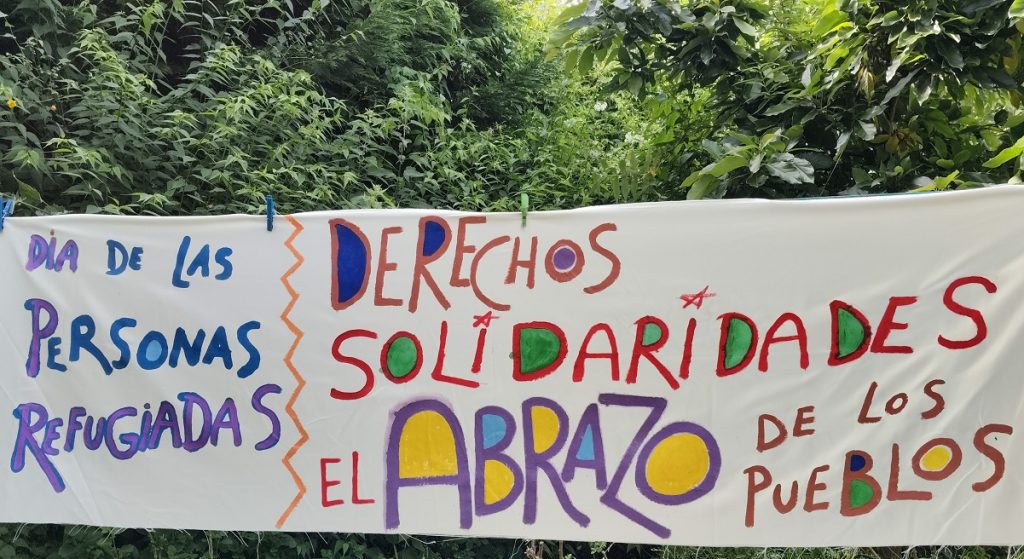 DIA DE LAS
PERSONAS
REFUGIADAS
DERECHOS
SOLIDARIDADES
EL ABRAZO
DE LOS
PUEBLOS